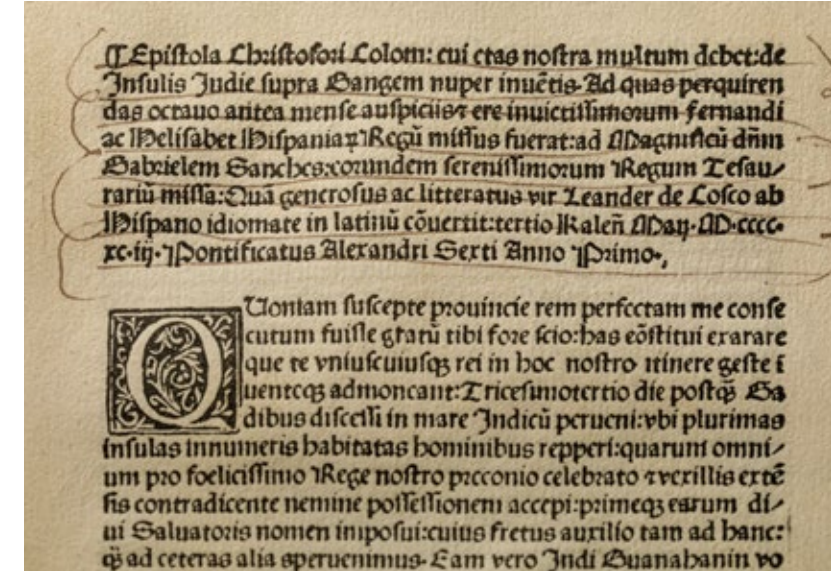 ¶ Epiſtola Chriſtofori Colom: cui etas noſtra multum debet: de
Inſulis Indie ſupra Gangem nuper inuētis. Ad quas perquiren
das octauo antea menſe auſpiciis ⁊ ere inuictiſſimorum Fernandi
ac Heliſabet Hiſpaniaꝝ Regū miſſus fuerat: ad Magnificū dn̄m
Gabrielem Sanches: eorundem ſereniſſimorum Regum Teſau⸗
rariū miſſa: Quā generoſus ac litteratus vir Leander de Coſco ab
Hiſpano idiomate in latinū cōuertit: tertio Kalen̄ Maij. M.cccc.
xc.iij. Pontificatus Alexandri Sexti Anno Primo.
QUoniam ſuſcepte prouincie rem perfectam me conſe
cutum fuiſſe gratū tibi fore ſcio: has cōſtitui exarare
que te vniuſcuiuſqꝫ rei in hoc noſtro itinere geſte ī
uenteqꝫ admoneant: Triceſimotertio die poſtqꝫ̄ Ga
dibus diſceſſi in mare Indicū perueni: vbi plurimas
inſulas innumeris habitatas hominibus repperi: quarum omni⸗
um pro foeliciſſimo Rege noſtro preconio celebrato ⁊ vexillis extē
ſis contradicente nemine poſſeſſionem accepi: primeqꝫ earum di⸗
ui Saluatoris nomen impoſui: cuius fretus auxilio tam ad hanc:
qꝫ̄ ad ceteras alias peruenimus. Eam vero Indi Guanahanin vo